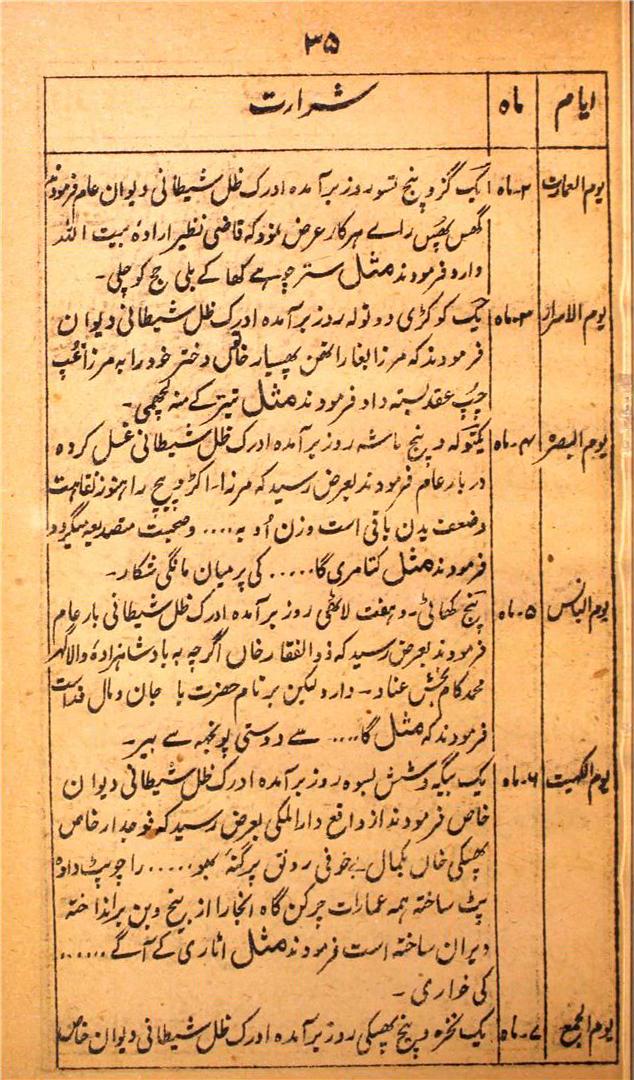 ۳۵
ایام ماہ شرارت
یوم العمارت ۲۔ماہ یک گز و پنج تسو روز برآمدہ ادرک ظل شیطانی دیوان عام فرمودند
گھس پھس راے ہرکارہ عرض نمود کہ قاضی نظیر ارادۂ بیت اللہ
دارد فرمودند مثل ستر چوہے کھا کے بلی حج کو چلی۔
یوم الاسرار ۳۔ماہ یک کوکڑی دو تولہ روز برآمدہ ادرک ظل شیطانی دیوان
فرمودند کہ مرزا بغارا لقن پھسیار خاں دختر خود را بہ مرزا غپ
چپ عقد بستہ داد فرمودند مثل تیتر کے منہ لچھمی۔
یوم البصرہ ۴۔ماہ یکتولہ و پنج ماشہ روز برآمدہ ادرک ظل شیطانی غسل کردہ
دربار عام فرمودند بعرض رسید کہ مرزا اکڑ و پیچ را ہنوز نقاہت
وضعف بدن باقی است وزن او بہ .... وصحبت متصدیہ میگردد
فرمودند مثل کتا مری گا..... کی پر میاں مانگی شکار۔
یوم البانس ۵۔ماہ پنج کھاٹی۔ وہفت لاٹھی روز برآمدہ ادرک ظل شیطانی بار عام
فرمودند بعرض رسید کہ ذوالفقار خاں اگرچہ بہ بادشاہزادۂ والاگہر
محمد کام بخش عناد۔ دارد لیکن بر نام حضرت با جان و مال فداست
فرمودند کہ مثل گا.... سے دوستی پونجھہ سے بیر۔
یوم الکہیت ۶۔ماہ یک بیگہ و شش بسوہ روز برآمدہ ادرک ظل شیطانی دیوان
خاص فرمودند از واقع دارالملکی بعرض رسید کہ فوجدار خاص
پھسکی خاں بکمال بے خوفی رونق پرگنۂ بھو..... را چوپٹ دادہ
پٹ ساختہ ہمہ عمارات چرکن گاہ آنجا را از بیخ و بن برانداختہ
ویران ساختہ است فرمودند مثل اناری کے آگے ......
کی خواری۔
یوم الجمع ۷۔ماہ یک نخرہ و پنج پھسکی روز برآمدہ ادرک ظل شیطانی دیوان خاص